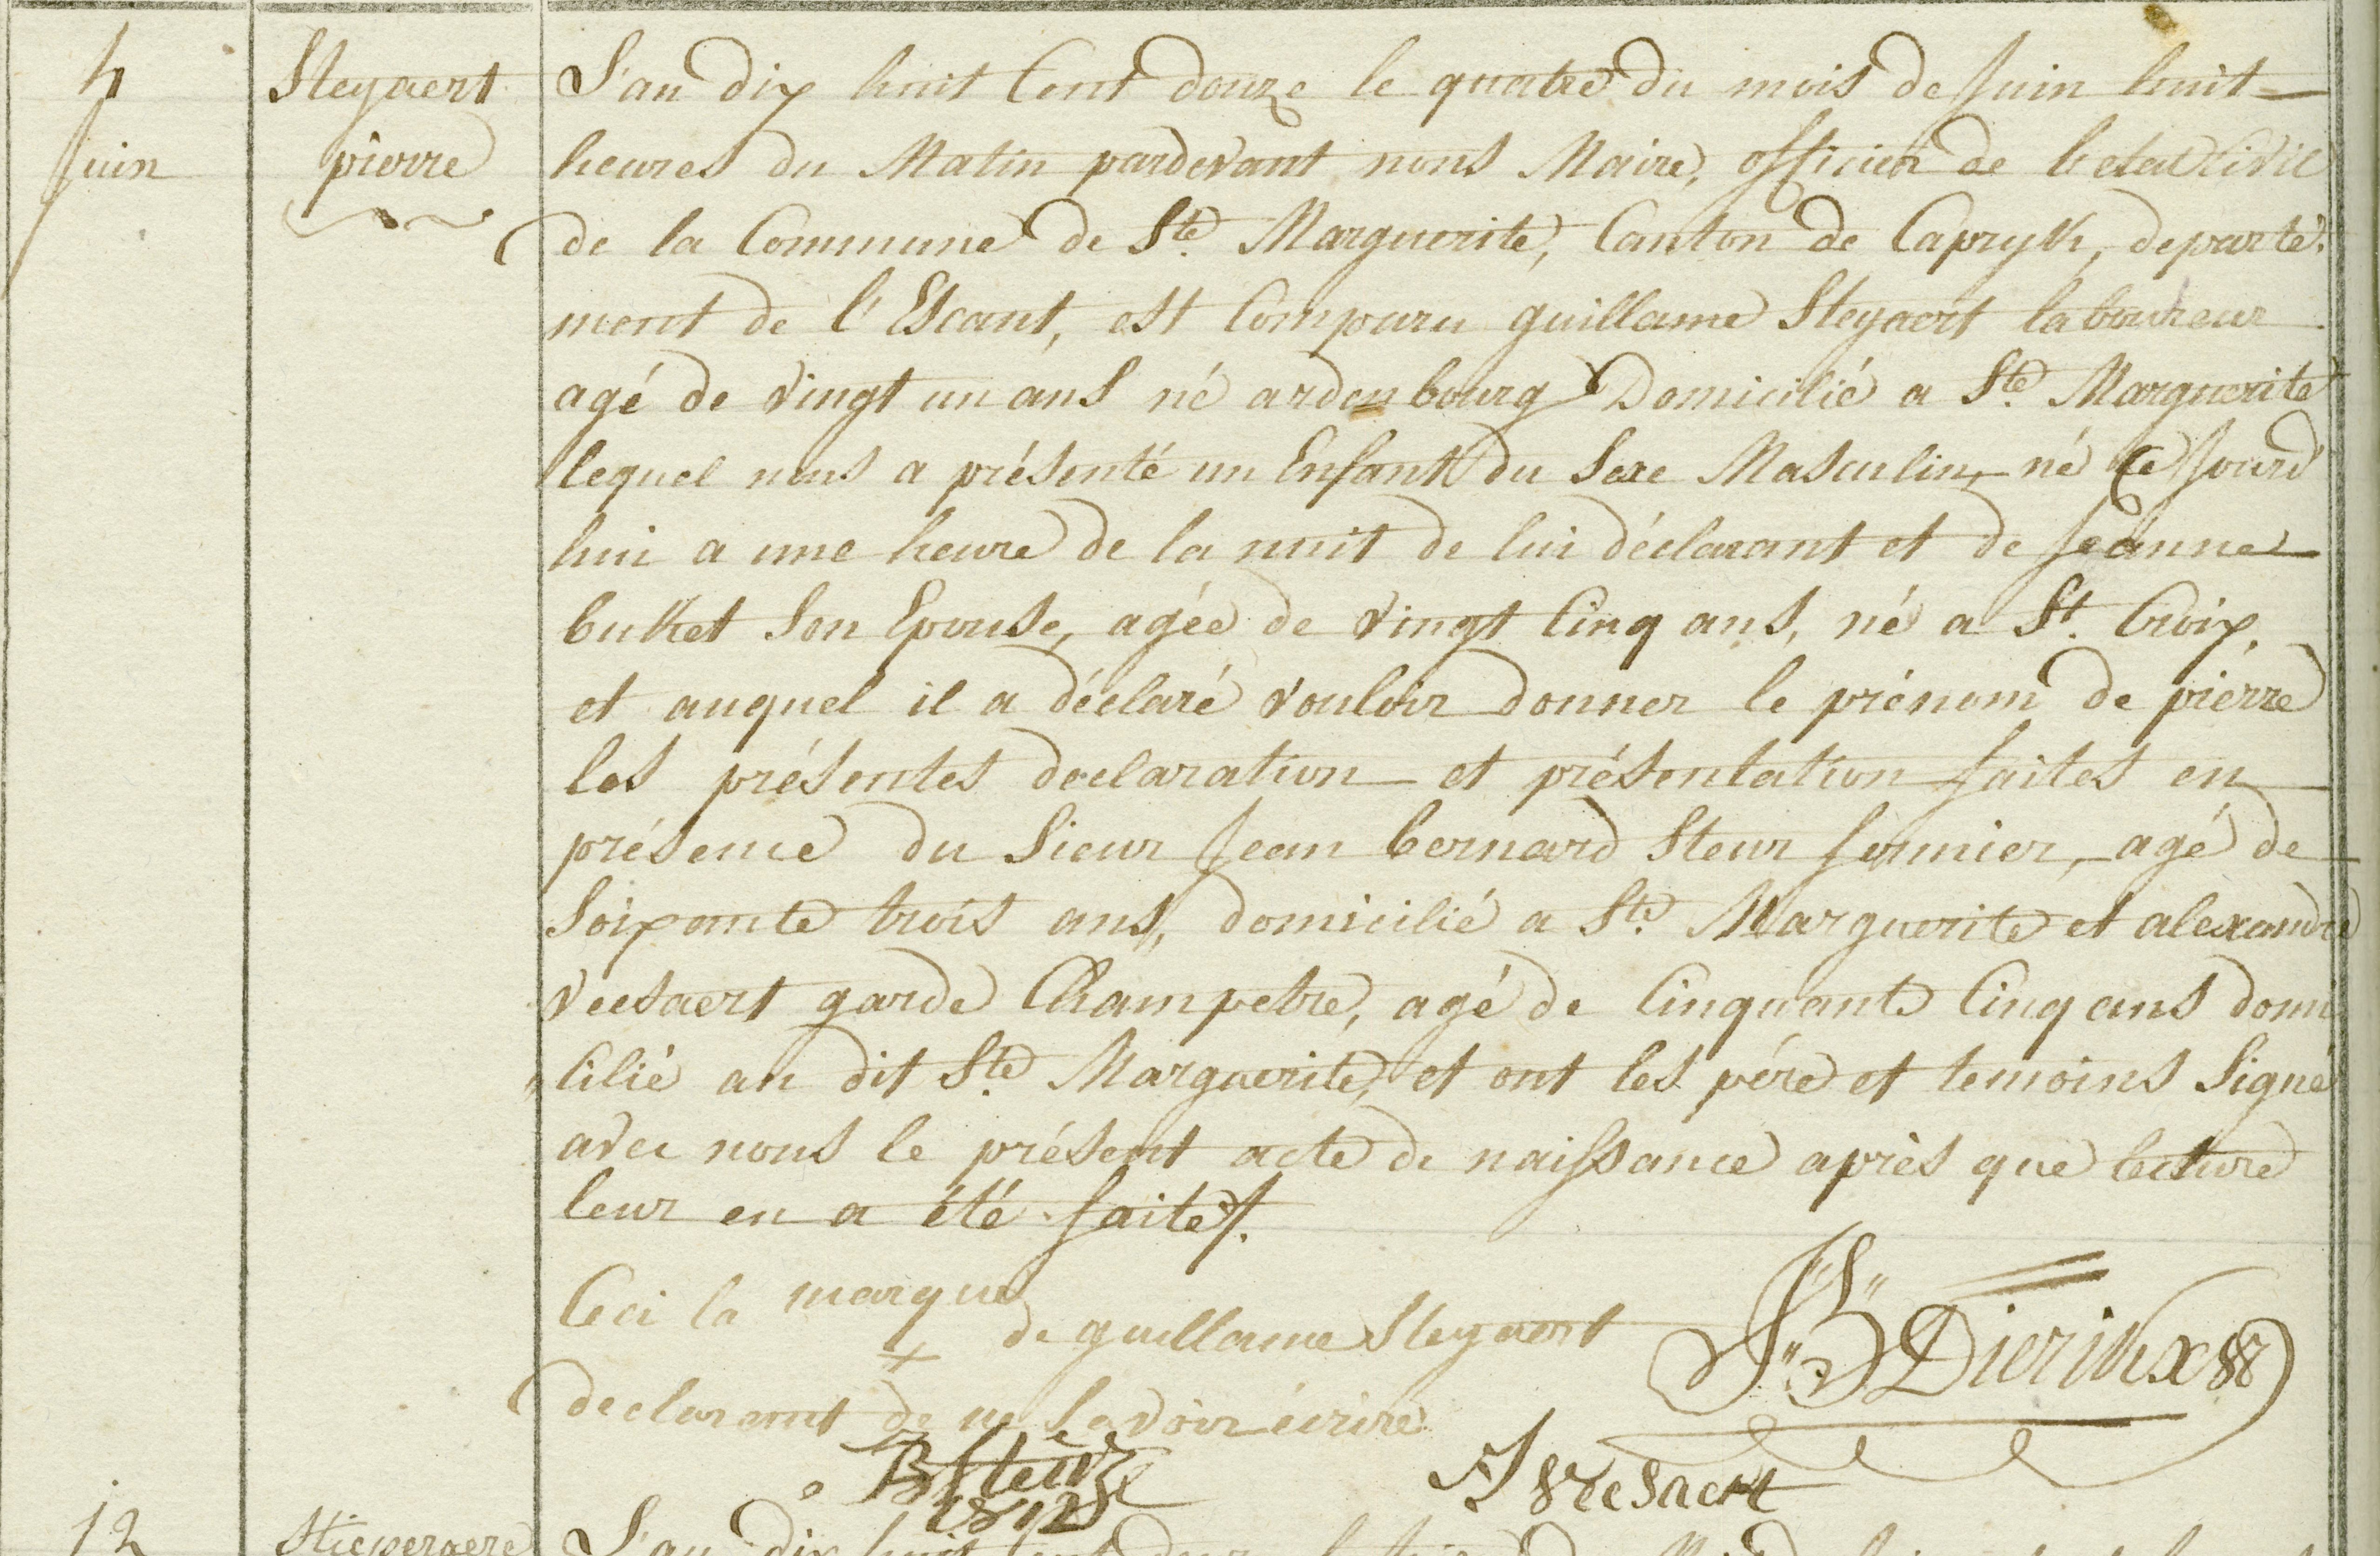 4
Juin
Steyaert
pierre
L'an dix huit Cent douze le quatre du mois de Juin huit
heures du Matin pardevant nous Maire, officier de l'etat Civil
de la Commune de Ste Marguerite, Canton de Capryk, departe
ment de l'Escaut, est Comparu guillame Steyaert laboureur
agé de vingt un ans né ardenbourg Domicilié a Ste Marguerite
lequel nous a présenté un Enfant du Sexe Masculin, né Ce Jourd
hui a une heure de la nuit de lui déclarant et de Jeanne
bukket Son Epouse, agée de vingt Cinq ans, né a St. Croix,
et auquel il a déclaré vouloir donner le prénom de pierre
les présentes declaration et présentation faites en
présence du Sieur Jean bernard Steur fermier, agé de
Soixante trois ans, domicilié a Ste Marguerite et alexandre
Veesaert garde Champetre, agé de Cinquante Cinq ans domi
cilié au dit Ste Marguerite, et ont les pére et temoins Signé
avec nous le présent acte de naissance après que lecture
leur en a été faite.
Ceci la marque
+ de guillame Steyaert
declarant de ne Savoir écrire
J: B: Dierikx
B Steur
1812
A Veesaert
12
L'an dix huit Cent